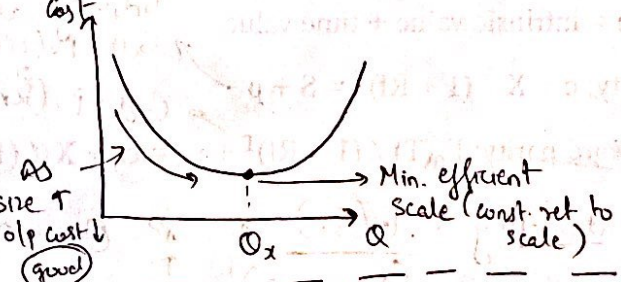 Cost
As
size ↑
o/p cost ↓
(good)
Min. efficient
Scale (const. ret to
scale)
Qx
Q